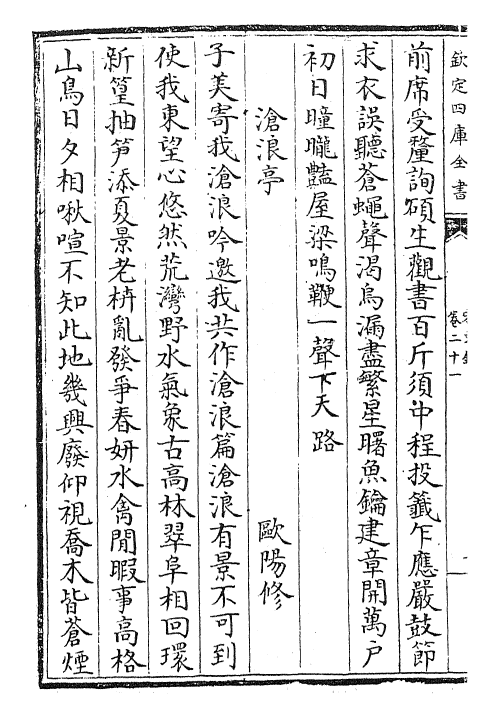 欽定四庫全書
卷二十一
前席受釐詢碩生觀書百斤須中程投籖乍應嚴鼓節
求衣誤聽蒼蠅聲渴烏漏盡繁星曙魚鑰建章開萬户
初日曈曨豔屋梁鳴鞭一聲下天路
滄浪亭
歐陽修
子美寄我滄浪吟邀我共作滄浪篇滄浪有景不可到
使我東望心悠然荒灣野水氣象古高林翠阜相回環
新篁抽笋添夏景老枿亂發爭春妍水禽閒暇事高格
山鳥日夕相啾喧不知此地幾興廢仰視喬木皆蒼煙